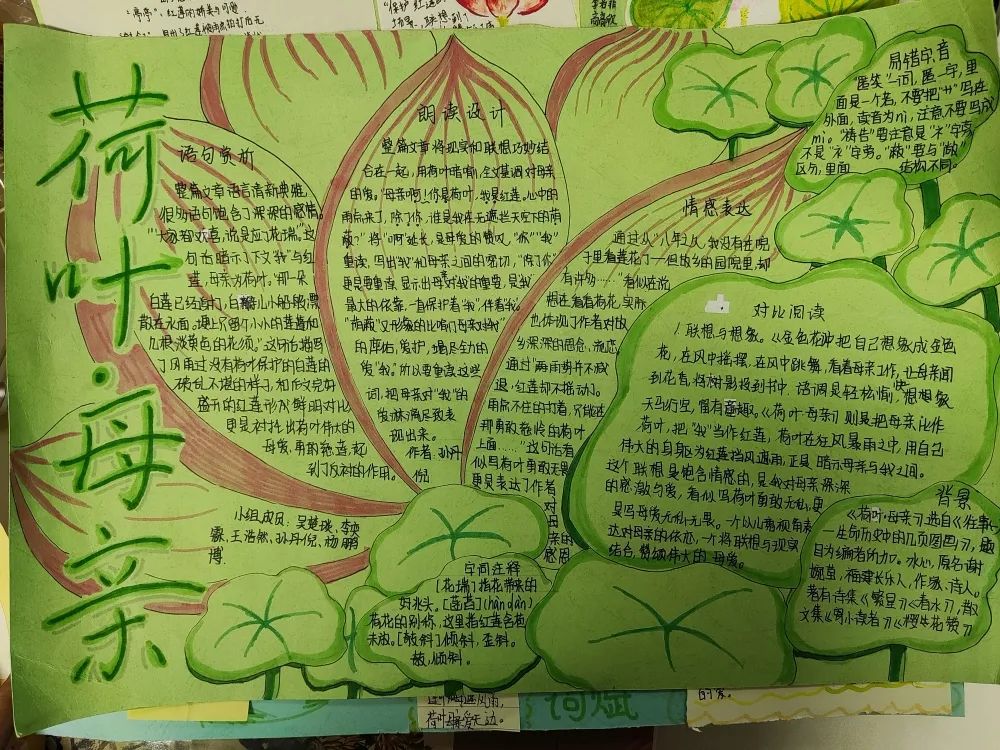 荷叶·母亲
语句赏析
整篇文章语言清新典雅,
很多语句饱含了深深的感情。
"大家都欢喜,说是应了花瑞。"这
句话暗示了下文"我"与红
莲,母亲为荷叶。"那一朵
白莲已经谢了,白瓣儿小船般散
散在水面。梗上只留个小小的莲蓬和
几根淡黄色的花须。"这句话描写
了风雨过没有荷叶保护的白莲的
破乱不堪的样子,和后文完好
盛开的红莲形成鲜明对比
更是衬托出荷叶伟大的
母爱,勇敢慈莲,起
到了反衬的作用。
小组成员:吴楚琰、李奕
霖、王浩然、孙丹倪、杨鹏
博。
朗读设计
整篇文章将现实和联想巧妙结
合在一起,用荷叶暗喻,全文基调对母亲
的爱。母亲啊!你是荷叶,我是红莲。心中的
雨点来了,除了你,谁是我在无遮拦天空下的荫
蔽?"将"啊"延长,是母爱的赞叹,"你""我"
重读,写出"我"和母亲之间的密切,"除了你"
更是要重读,显示出母亲对我的重要,是"我"
最大的依靠,一直保护着"我",伴着"我"。
"荫蔽"又形象的比喻了母亲对"我"
的庇佑,爱护,竭尽全力的
爱"我"。所以要重读这些
词,把母亲对"我"的
爱淋漓尽致表
现出来。
作者:孙丹
倪
情感表达
通过从"八年之久,我没有在院
子里看莲花了——但故乡的园院里,却
有许多……"看似在说
想在看看荷花,实际
也体现了作者对故
乡深深的思念、流恋
通过"雨雨势并不减
退,红莲却不摇动了。
雨点不住的打着,只能在
那勇敢慈怜的荷叶
上面……"这句话看
似写荷叶勇敢无畏
更是表达了作者
对母
亲的
感恩
易错字音
"匿笑"一词,匿一字,里
面是一个若,不要把"艹"写在
外面,读音为nì,注意不要写成
mì。"祷告"要注意是"礻"字旁,
不是"衤"字旁。"蔽"要与"敝"
区分,里面结构不同。
对比阅读
1.联想与想象。《金色花》中把自己想象成金色
花,在风中摇摆,在风中跳舞,看着母亲工作,让母亲闻
到花香,将树影投到书中,语调是轻松愉快,想想象
天马行空,富有童趣。《荷叶·母亲》则是把母亲比作
荷叶,把"我"当作红莲,荷叶在狂风暴雨之中,用自己
伟大的自身为红莲挡风遮雨,正是暗示母亲与我之间。
这个联想是饱含情感的,是我对母亲深深
的感激与爱,看似写荷叶勇敢无私,更
是写母爱无私无畏。一个以儿童视角表
达对母亲的依恋,一个将联想与现实
结合,赞颂伟大的母爱。
背景
《荷叶·母亲》选自《往事——
一生命历史中的几页图画》,题
目为编者所加。冰心,原名谢
婉莹,福建长乐人,作家、诗人。
著有诗集《繁星》《春水》,散
文集《寄小读者》《樱花赞》
字词注释
[花瑞]指花带来的
好兆头。[菡萏](hàn dàn)
荷花的别称,这里指红莲含苞
未放。[攲斜]倾斜,歪斜。
攲,倾斜。
荷叶